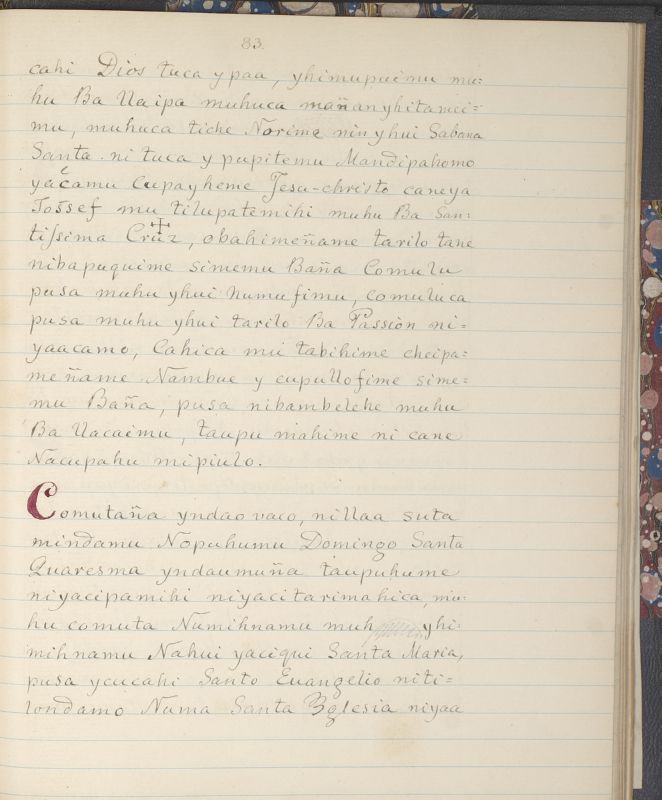 83.
cahi Dios tuca y paa, yhimupuimu mu=
hu Ba Uaipa muhuca mañanyhitamei=
mu, muhuca tiche Norime nin yhui Sabana
Santa. ni tuca y pupitemu Mandipahomo
yacamu Cupayheme Jesu-christo caneya
Tossef mu tilupatemihi muhu Ba San=
tissima Cruz, obahimeñame tarilo tane
nibapuquime simemu Baña Comulu
pusa muhu yhui numufimu, comuluca
pusa muhu yhui tarilo Ba Passiòn ni=
yaacamo, Cahica mu tabihime cheipa=
meñame Nambue y cupullofime sime=
mu Baña, pusa nibambeleke muhu
Ba Uacaimu, taupu mahime ni cane
Nacupahu mipiulo.
Comutaña yndao vaco, nillaa suta
mindamu Nopuhumu Domingo Santa
Quaresma yndaumuña taupuhume
niyacipamihi niyacitarimahica, mu=
hu comuta Numihnamu muh yhi=
mihnamu Nahui yaciqui Santa Maria,
pusa ycucahi Santo Euangelio niti=
londamo Numa Santa Yglesia niyaa